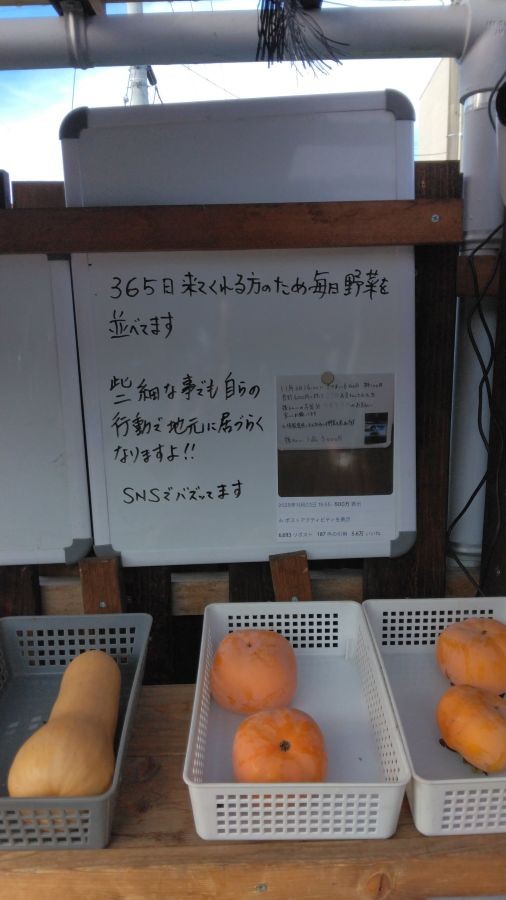 365日来てくれる方のため毎日野菜を
並べてます
些細な事でも自らの
行動で地元に居づらく
なりますよ!!
SNSでバズッてます
500万 表示
ポストアクティビティを表示
6,693 リポスト 187 件の引用 5.6万 いいね